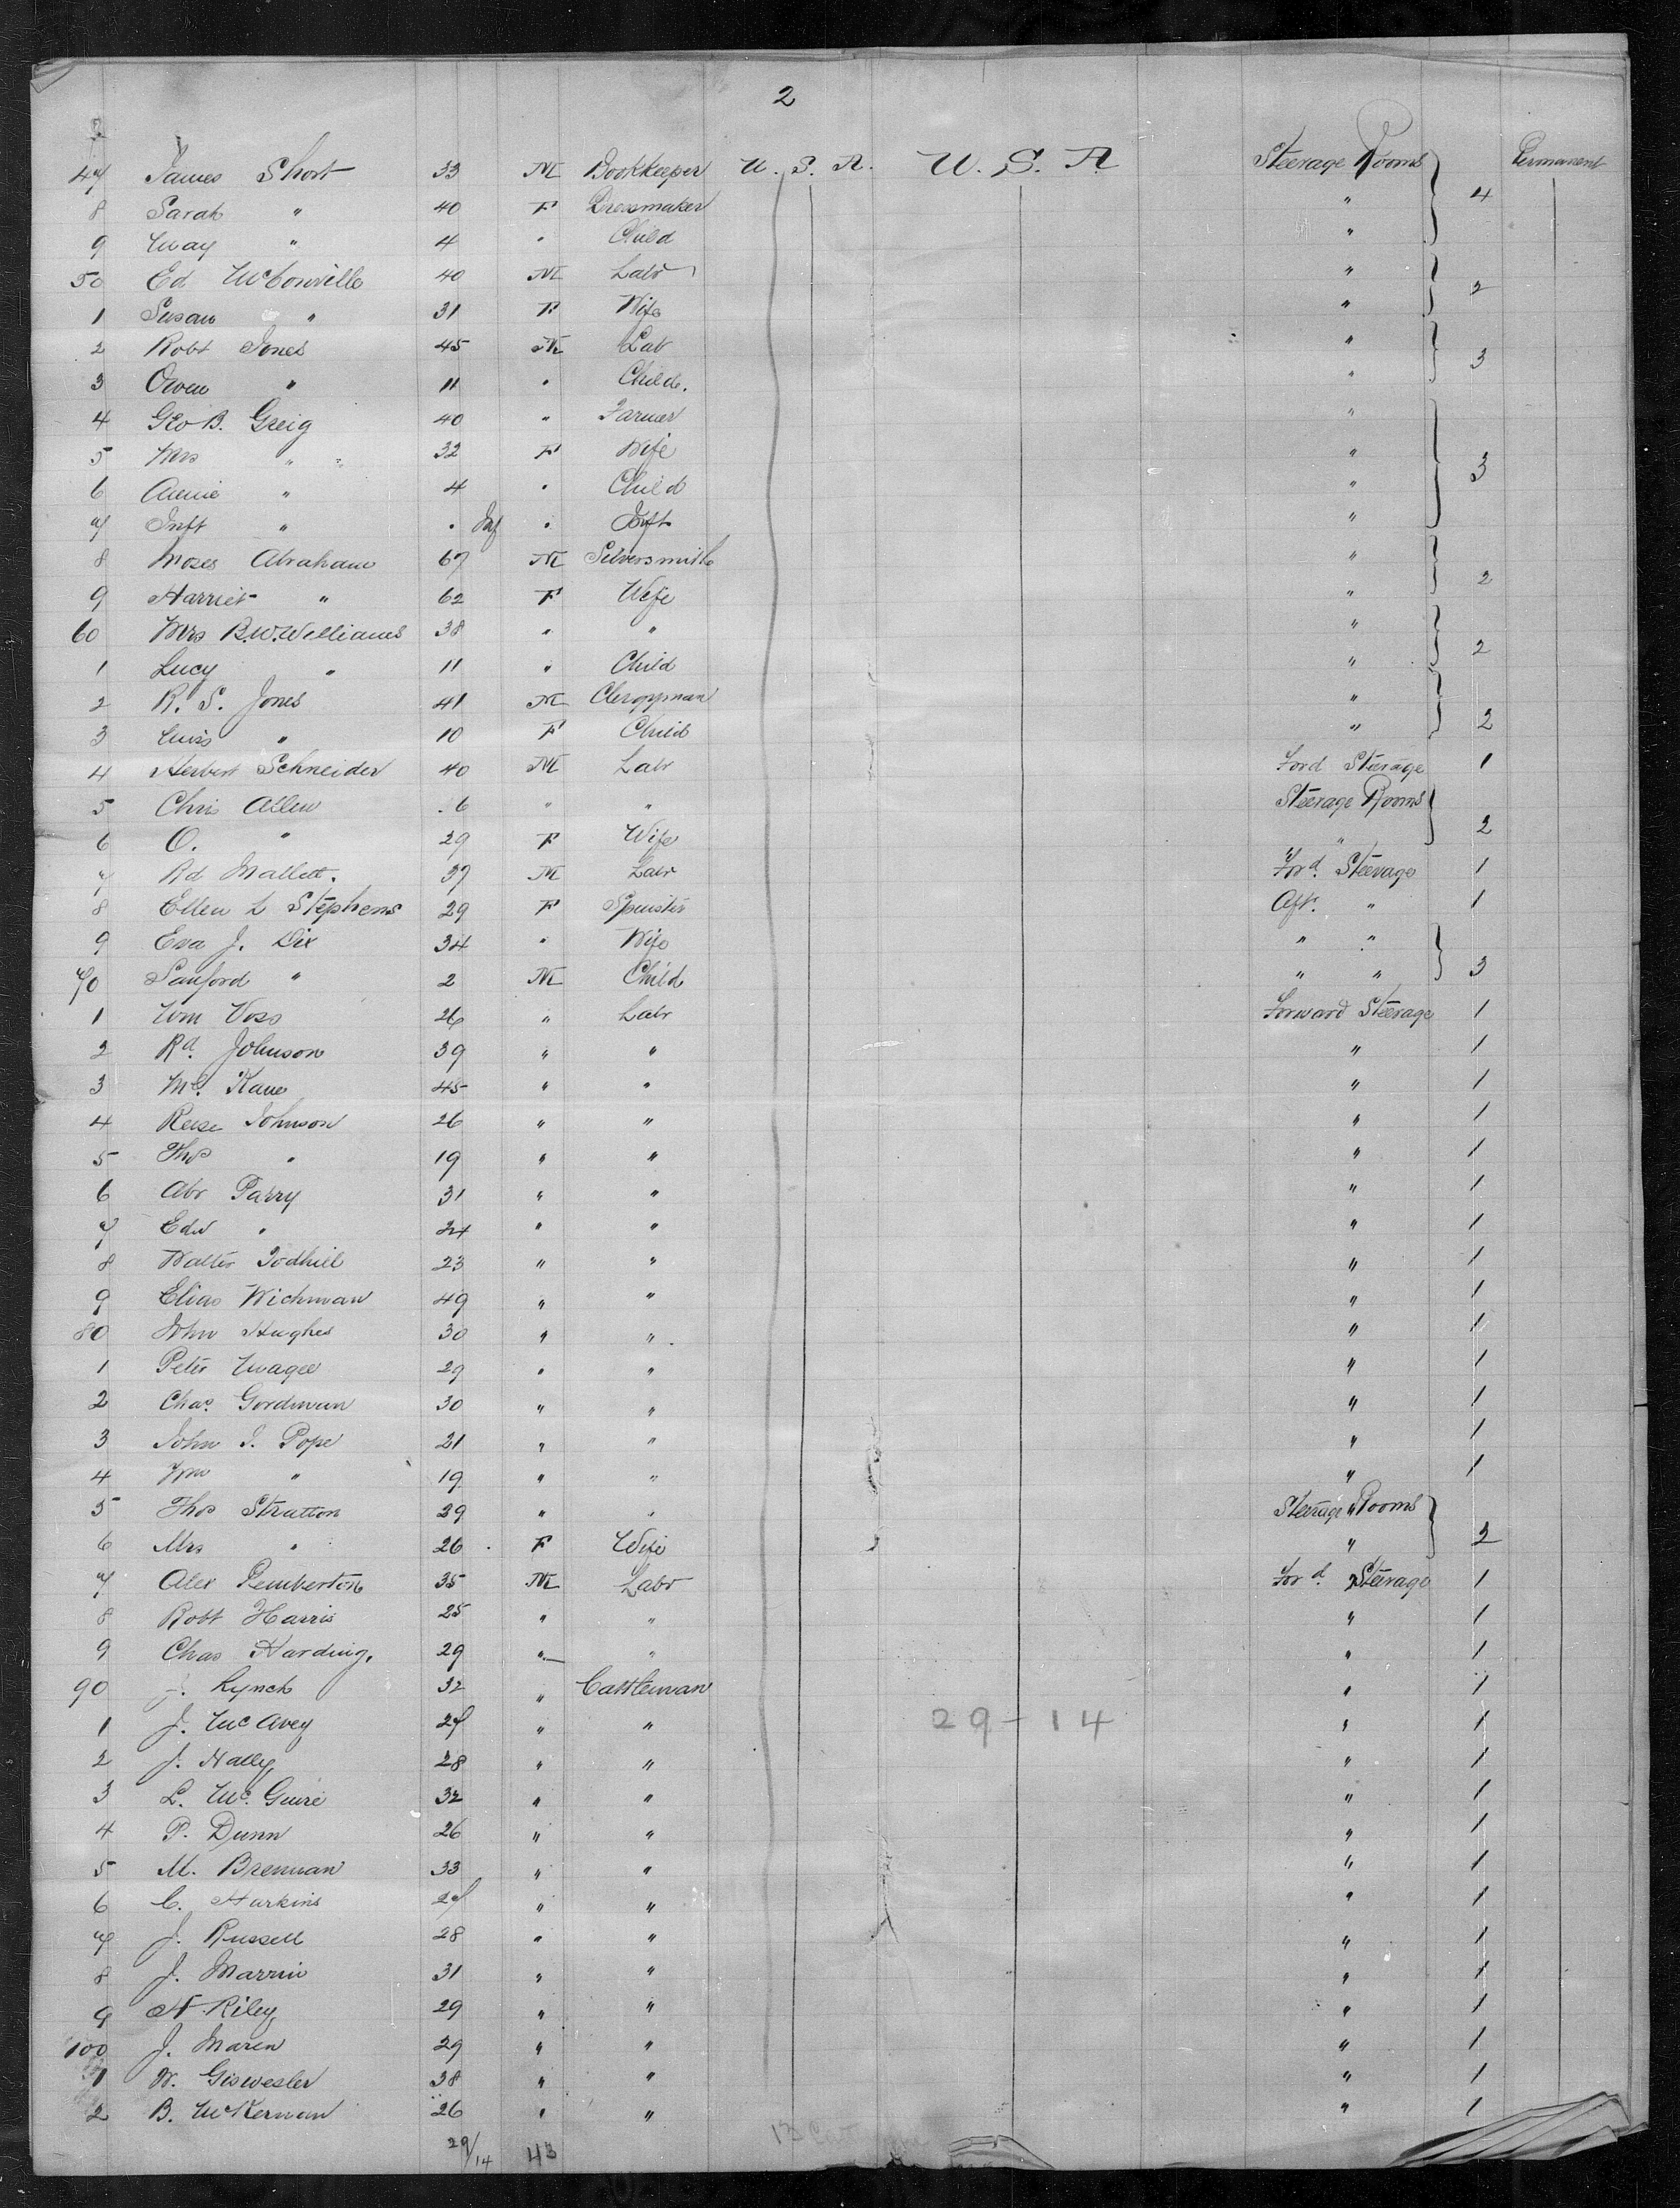 2
47 James Short 33 M Bookkeeper U. S. A. U. S. A Steerage Rooms 4 Permanent
8 Sarah " 40 F Dressmaker "
9 May " 4 " Child "
50 Ed McConville 40 M Labr " 2
1 Susan " 31 F Wife "
2 Robt Jones 45 M Lab " 3
3 Owen " 11 " Child. "
4 Geo B. Greig 40 " Farmer "
5 Mrs " 32 F Wife " 3
6 Annie " 4 " Child "
7 Inft " Inf " Inft "
8 Moses Abraham 67 M Silversmith " 2
9 Harriet " 62 F Wife "
60 Mrs B.W. Williams 38 " " " 2
1 Lucy " 11 " Child "
2 R. S. Jones 41 M Clergyman " 2
3 " 10 F Child "
4 Herbert Schneider 40 M Labr Ford Steerage 1
5 Chris Allen 6 " " Steerage Rooms 2
6 O. " 29 F Wife "
7 Rd Mallett. 37 M Labr Ford. Steerage 1
8 Ellen L Stephens 29 F Spinster Aft. " 1
9 Eva J. Dix 34 " Wife " " 3
70 Sanford " 2 M Child " "
1 Wm Voss 26 " Labr Forward Steerage 1
2 Rd. Johnson 39 " " " 1
3 Ml. Kane 45 " " " 1
4 Reese Johnson 26 " " " 1
5 Thos " 19 " " " 1
6 Abr Parry 31 " " " 1
7 Edw " 24 " " " 1
8 Walter Todhill 23 " " " 1
9 Elias Wichman 49 " " " 1
80 John Hughes 30 " " " 1
1 Peter Magee 29 " " " 1
2 Chas. Gordman 30 " " " 1
3 John J. Pope 21 " " " 1
4 " 19 " " " 1
5 Thos Stratton 39 " " Steerage Rooms 2
6 Mrs " 26 F Wife "
7 Alex Pemberton 35 M Labr Ford. Steerage 1
8 Robt Harris 25 " " " 1
9 Chas Harding. 29 " " " 1
90 J. Lynch 32 " Cattleman " 1
1 J. McAvey " " 29-14 " 1
2 J. Nally 28 " " " 1
3 L. McGuire 32 " " " 1
4 P. Dunn 26 " " " 1
5 M. Brennan 33 " " " 1
6 C. Harkins " " " 1
7 J. Russell 28 " " " 1
8 J. Marrin 31 " " " 1
9 Riley 29 " " " 1
100 J. Maren 29 " " " 1
1 W. Giswesler 38 " " " 1
2 B. McKernan 26 " " " 1
29/14 43